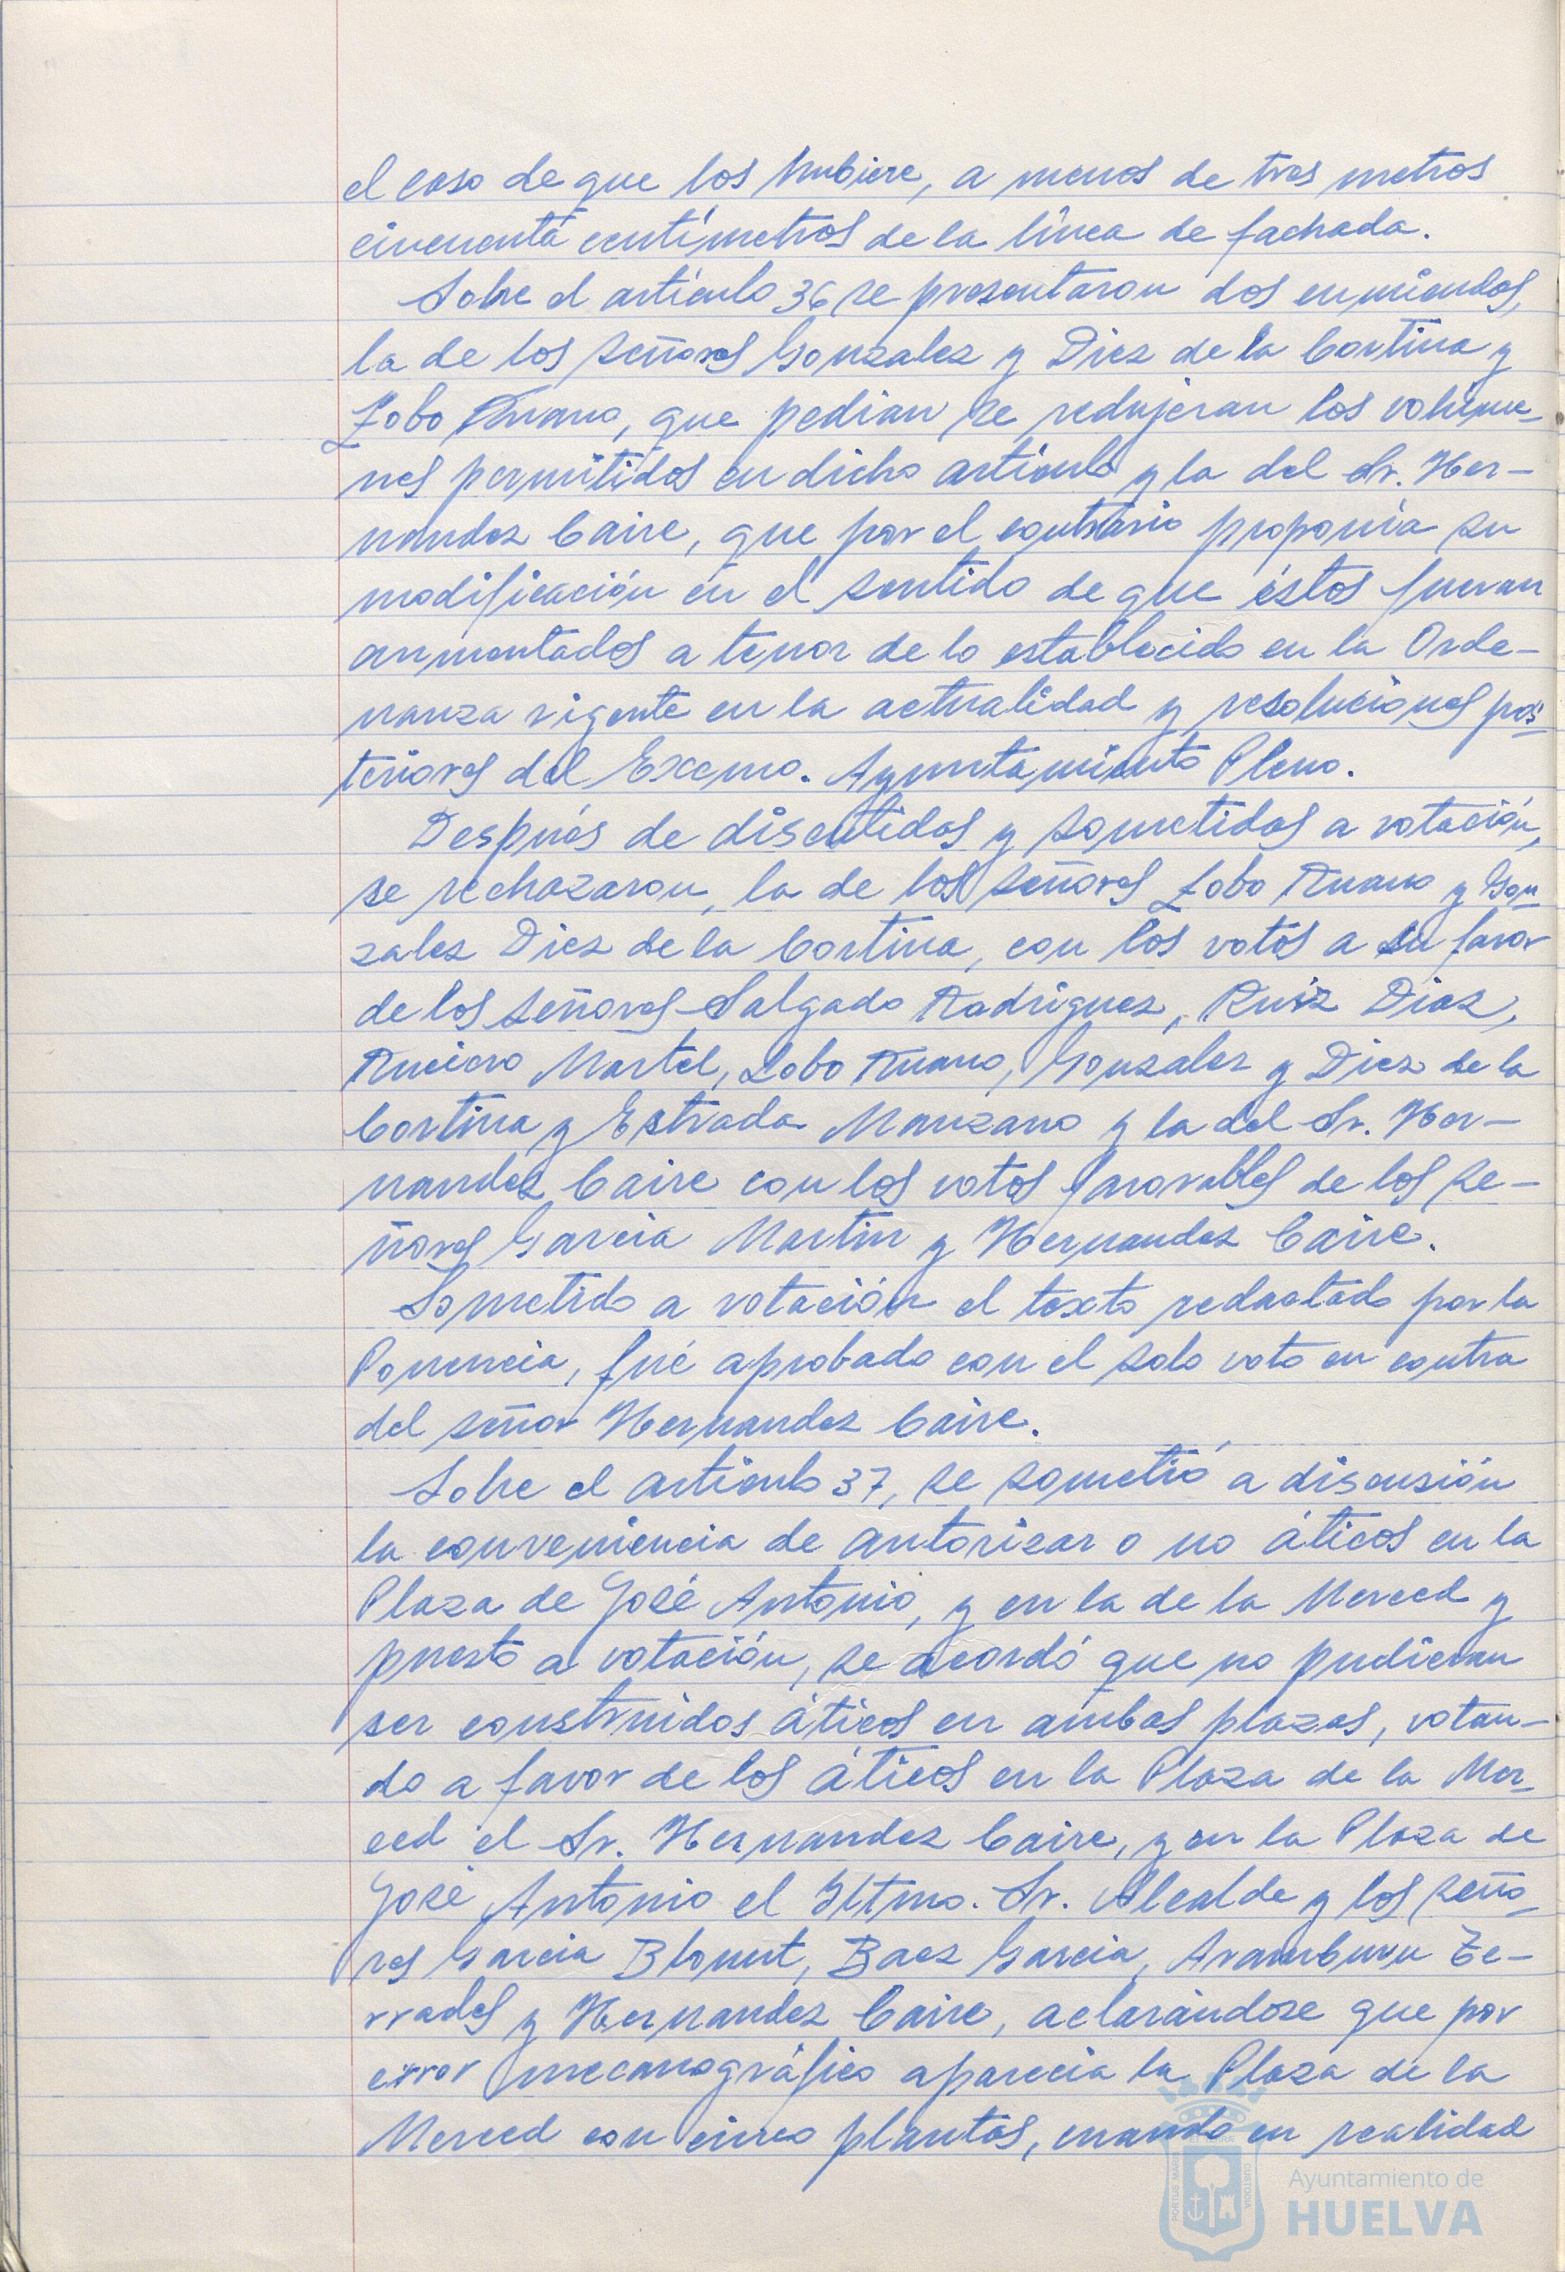 el caso de que los hubiere, a menos de tres metros
cincuenta centímetros de la línea de fachada.
Sobre el artículo 36 se presentaron dos enmiendas,
la de los señores Gonzalez y Diez de la Cortina y
Lobo Ruano, que pedian se redujeran los volúme-
nes permitidos en dicho artículo y la del Sr. Her-
nandez Caire, que por el contrario proponía su
modificación en el sentido de que éstos fueran
aumentados a tenor de lo establecido en la Orde-
nanza vigente en la actualidad y resoluciones pos-
teriores del Excmo. Ayuntamiento Pleno.
Después de discutidas y sometidas a votación,
se rechazaron, la de los señores Lobo Ruano y Gon-
zalez Diez de la Cortina, con los votos a su favor
de los señores Salgado Rodriguez, Ruiz Diaz,
Ruciero Martel, Lobo Ruano, Gonzalez y Diez de la
Cortina y Estrada Manzano y la del Sr. Her-
nandez Caire con los votos favorables de los se-
ñores Garcia Martin y Hernandez Caire.
Sometido a votación el texto redactado por la
Ponencia, fué aprobado con el solo voto en contra
del señor Hernandez Caire.
Sobre el artículo 37, se sometió a discusión
la conveniencia de autorizar o no áticos en la
Plaza de José Antonio, y en la de la Merced y
puesto a votación, se acordó que no pudieran
ser construidos áticos en ambas plazas, votan-
do a favor de los áticos en la Plaza de la Mer-
ced el Sr. Hernandez Caire, y en la Plaza de
José Antonio el Iltmo. Sr. Alcalde y los seño-
res Garcia Blonut, Baez Garcia, Aramburu Te-
rrades y Hernandez Caire, aclarándose que por
error mecanográfico aparecia la Plaza de la
Merced con cinco plantas, cuando en realidad
Ayuntamiento de
HUELVA